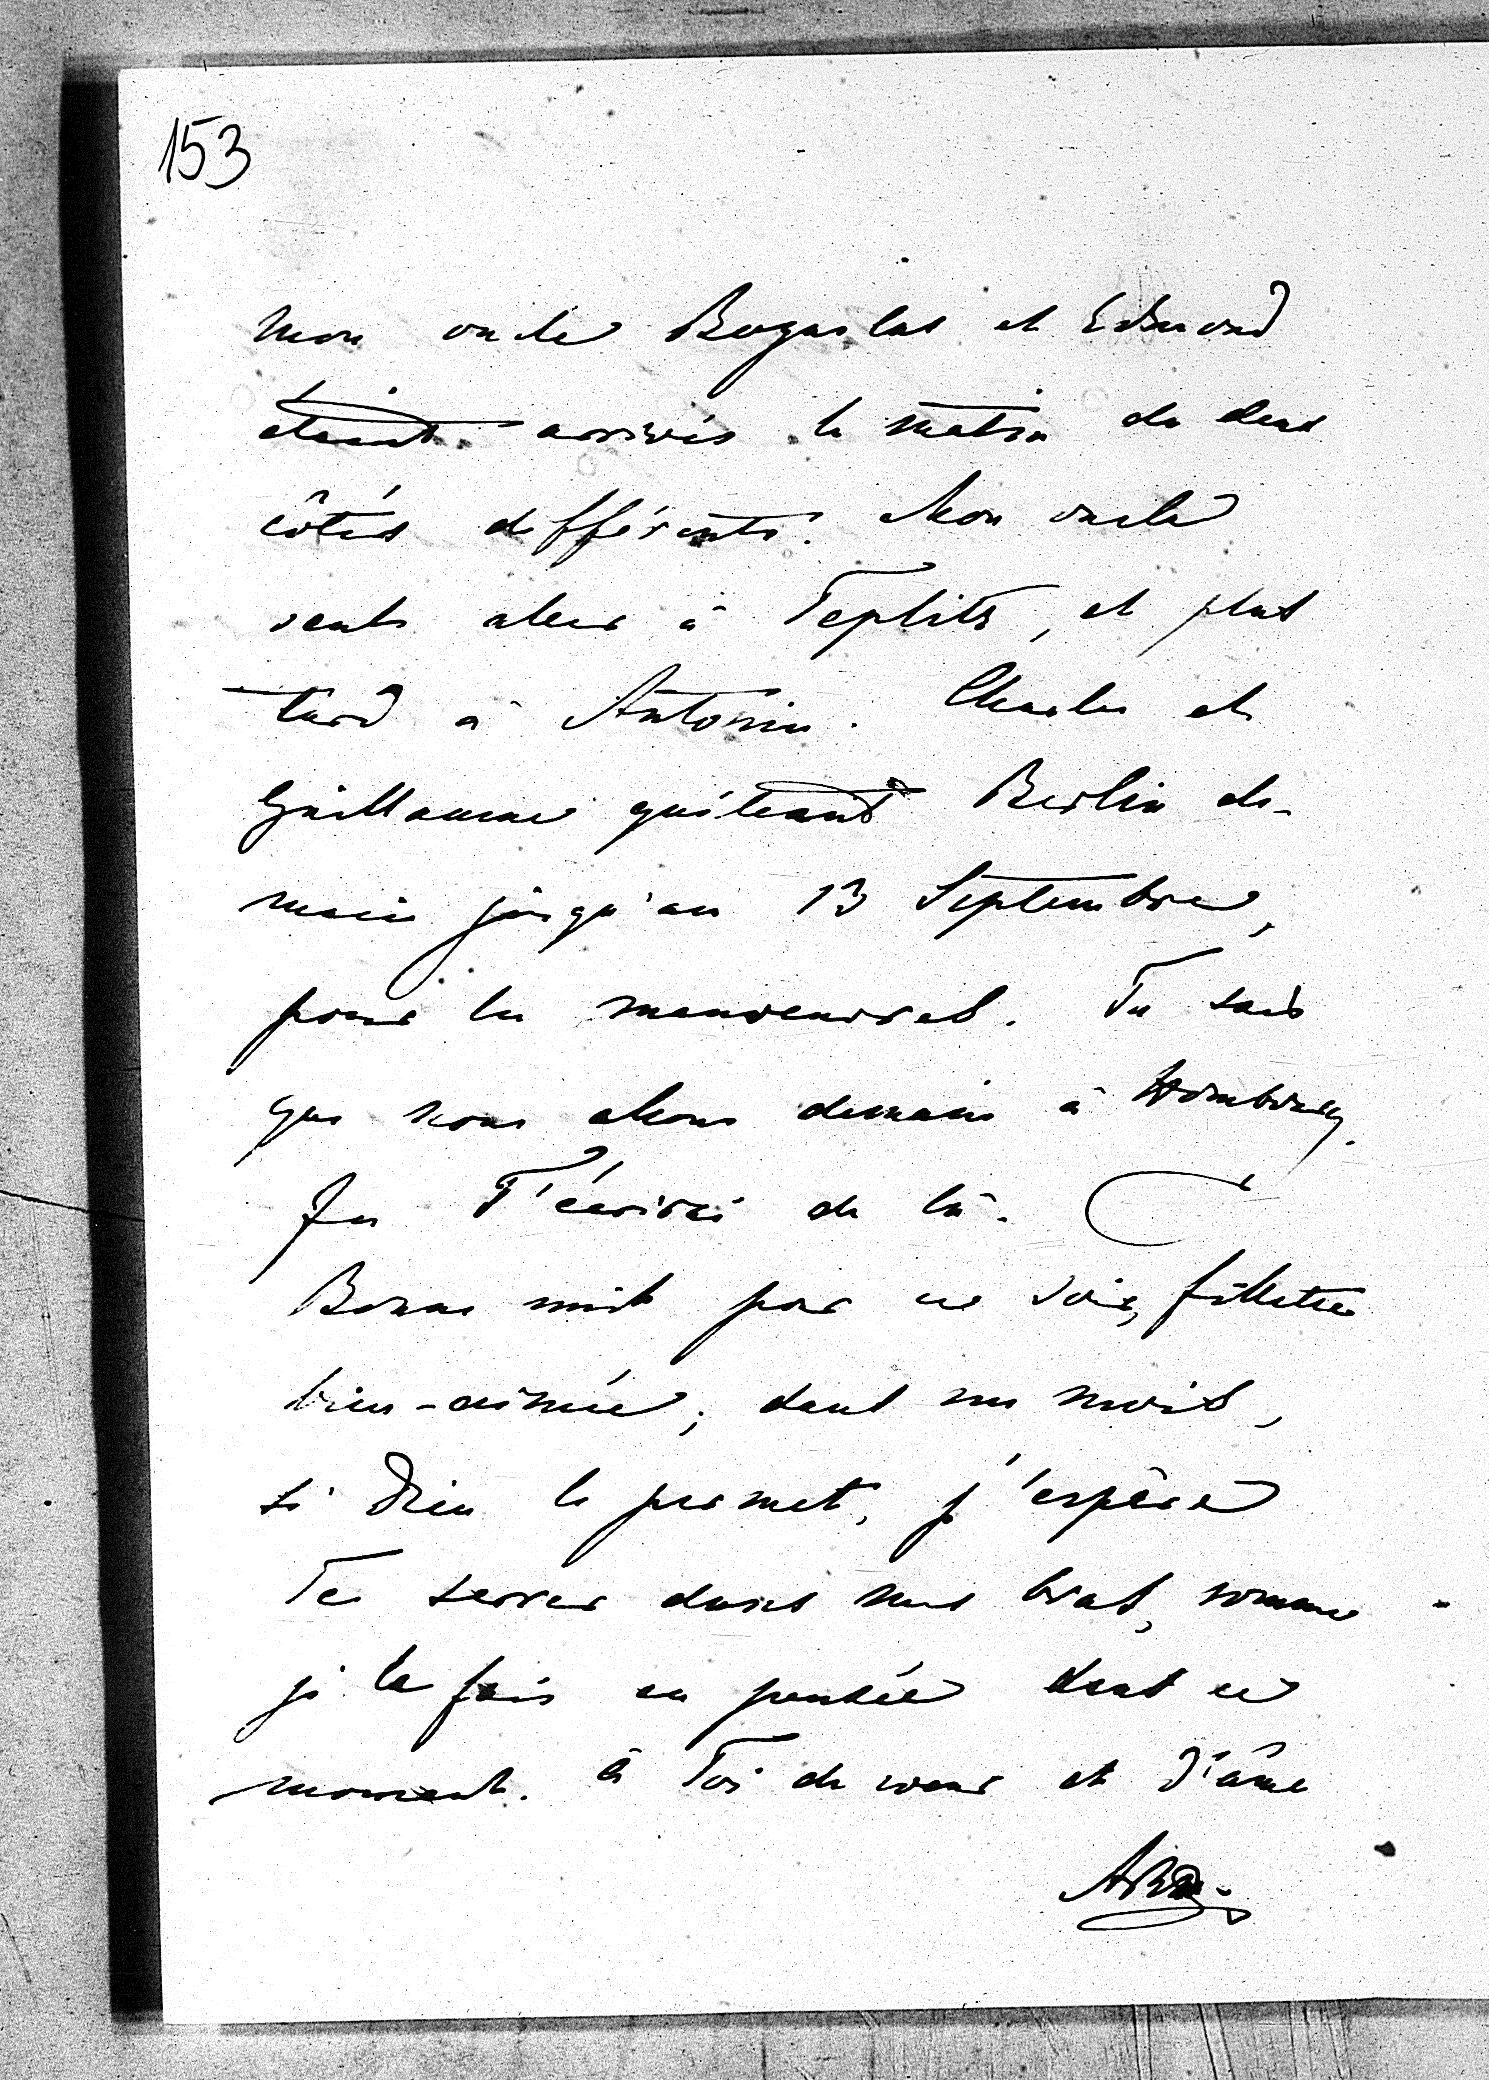 153
Mon oncle Boguslas et Edmond
étaient arrivés le matin de deux
côtés différents. Mon oncle
veut aller à Teplitz, et plus
tard à Antonin. Charles et
Guillaume quittent Berlin de-
main jusqu'au 13 Septembre,
pour les manoeuvres. Tu sais
que nous allons demain à Hombourg.
Je T'écrirai de là.
Bonne nuit pour ce soir, fillette
bien-aimée; dans un mois,
si Dieu le permet, j'espère
Te serrer dans mes bras, comme
je le fais en pensée dans ce
moment. à Toi de coeur et d'âme